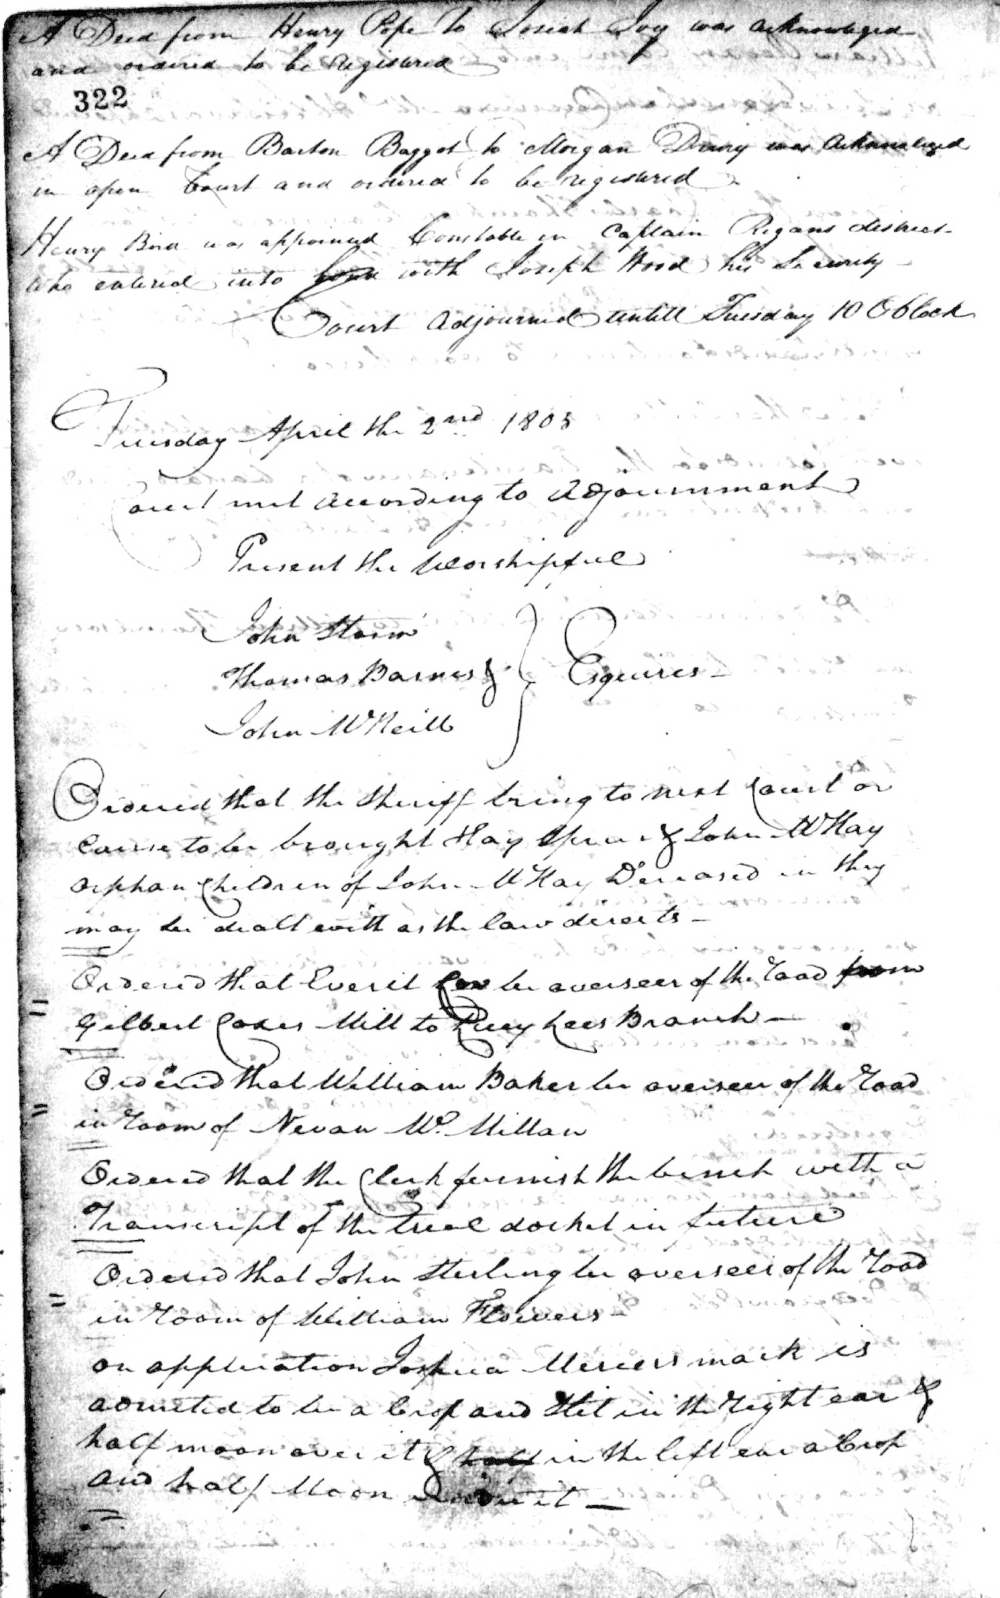 A Deed from Henry Pope to Josiah Ivy was acknowleged
and ordered to be registered
322
A Deed from Barton Baggot to Morgan Drury was acknowleged
in open Court and ordered to be registered
Henry Bird was appointed Constable in Captain Regans district
who entered into bond with Joseph Wood his Security
Court Adjourned untill Tuesday 10 OClock
Tuesday April the 2nd 1805
Court met according to adjournment
Present the Worshipful
John Storm
Thomas Barnes & Esquires
John McNeill
Ordered that the Sheriff bring to next Court or
cause to be brought Hay & John McKay
orphan Children of John McKay Deceased in they
may be dealt with as the law directs
Ordered that Everit Cox be overseer of the road from
Gilbert Coxes Mill to Lees Branch
Ordered that William Baker be overseer of the road
in room of Nevan Mc. Millan
Ordered that the Clerk furnish the bench with a
Transcript of the trial docket in future
Ordered that John Sterling be overseer of the road
in room of William Flowers
on application Joshua Mercers mark is
admited to be a Crop and Slit in the right ear &
half moon over it & half in the left ear a Crop
and half Moon under it